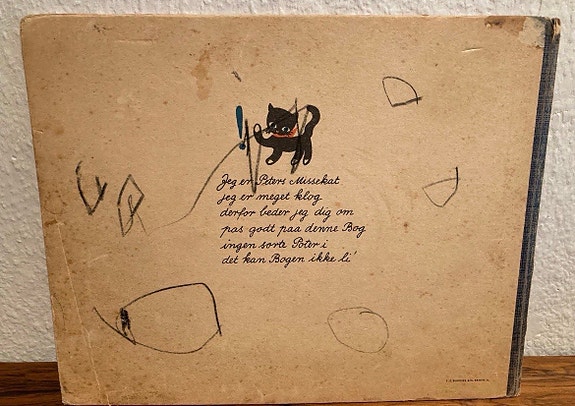 !
Jeg er Peters Missekat
jeg er meget klog
derfor beder jeg dig om
pas godt paa denne Bog
ingen sorte Poter i
det kan Bogen ikke li'